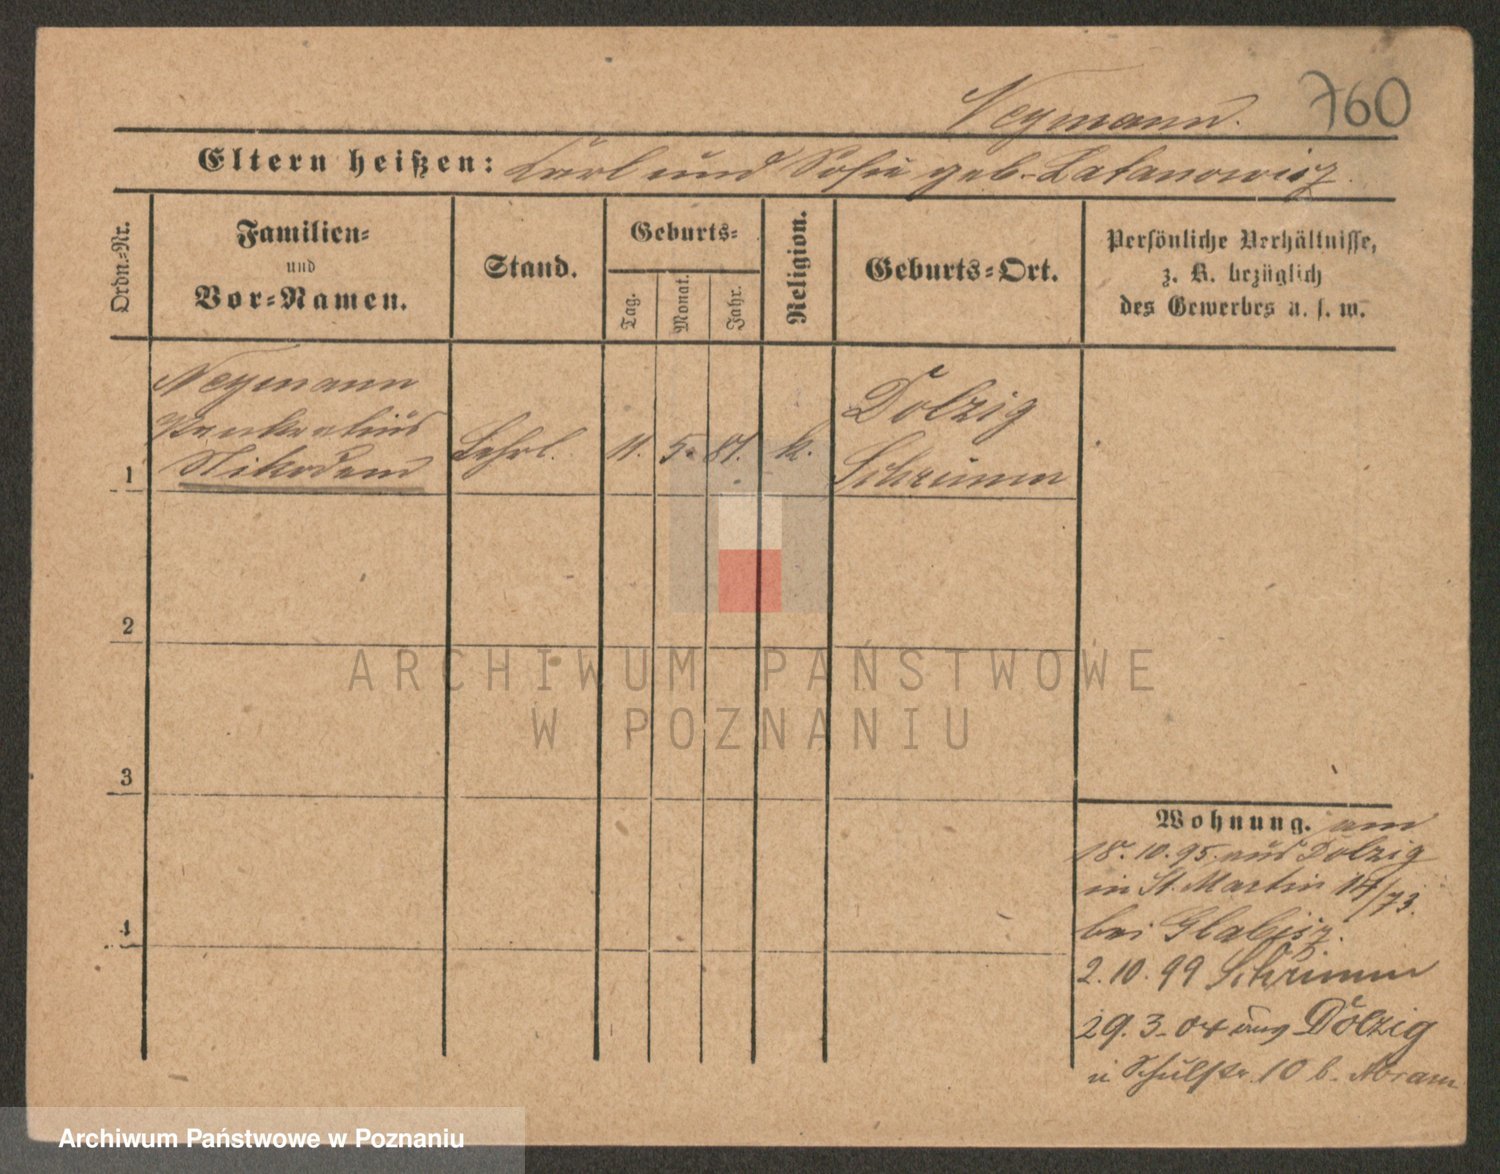 Neymann. 760
Eltern heißen: Carl und Sofie geb. Latanowicz
Ordn.-Nr.
Familien-
und
Vor-Namen.
Stand.
Geburts-
Tag.
Monat.
Jahr.
Religion.
Geburts-Ort.
Persönliche Verhältnisse,
z. B. bezüglich
des Gewerbes u. s. w.
Neymann
Pankratius
Nikodem
1
Lehrl. 11. 5. 81. k.
Dolzig
Schrimm
2
3
4
Wohnung. am
18. 10. 95. aus Dolzig
in St. Martin 14/73.
bei Glabisz.
2. 10. 99 Schrimm
29. 3. 04 aus Dolzig
n Schulstr. 10 b. Abram
ARCHIWUM PAŃSTWOWE
W POZNANIU
Archiwum Państwowe w Poznaniu